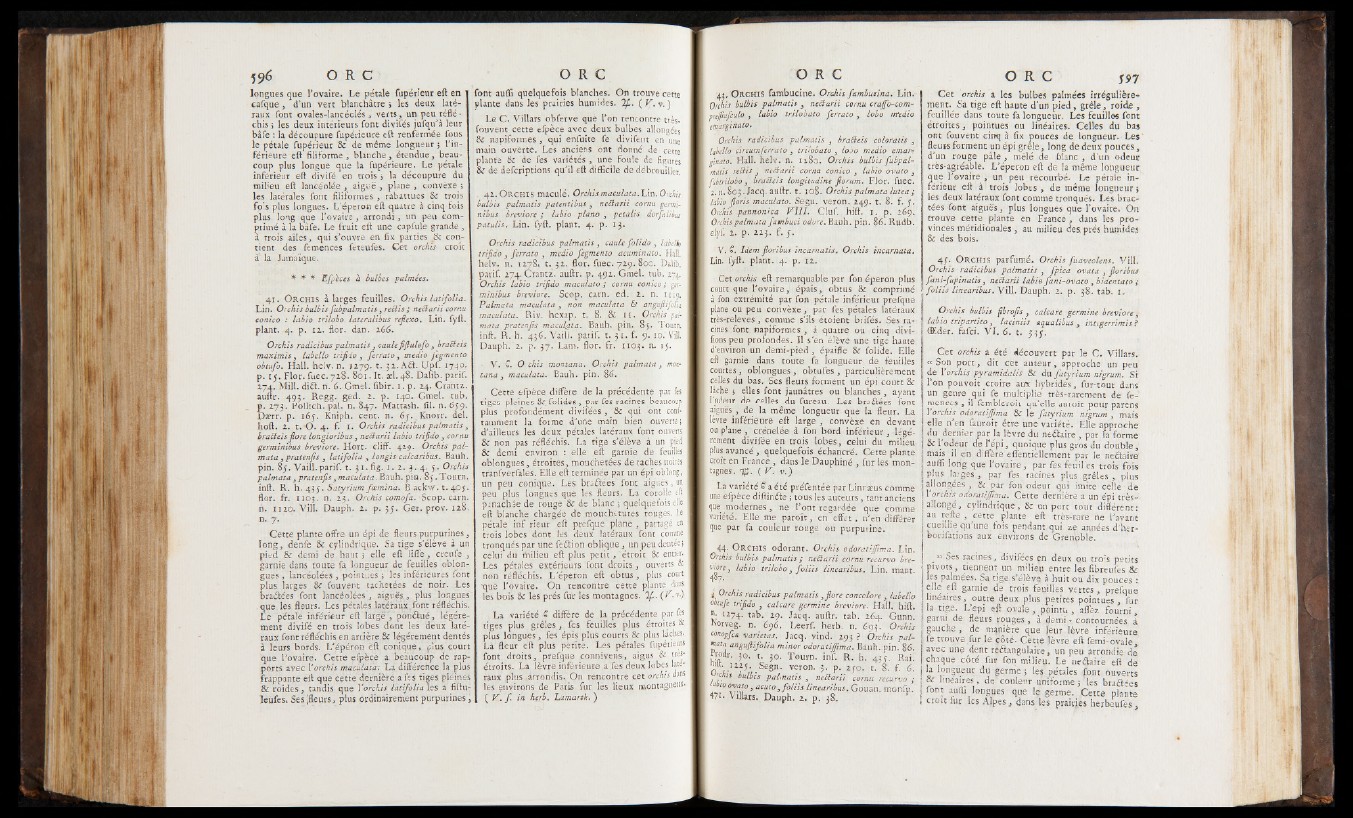 596 ORC
longues que l'ovaire. Le pétale ſupérieur eſt en
caſque, d'un vert blanchâtre; les deux laté-
raux ſont ovales-lancéolés, verts, un peu réflé-
chis; les deux intérieurs ſont diviſés juſqu'à leur
bâſe: la découpure ſupérieure eſt renfermée ſous
le pétale ſupérieur & de même longueur; l'in-
férieure eſt filiforme, blanche, étendue, beau-
coup plus longue que la ſupérieure. Le pétale
inférieur eſt diviſé en trois; la découpure du
milieu eſt lancéolée, aiguë, plane, convexe;
les latérales ſont filiformes, rabattues & trois
fois plus longues. L'éperon eſt quatre à cinq fois
plus long que l'ovaire, arrondi, un peu com-
primé à la bâſe. Le fruit eſt une capſule grande,
à trois ailes, qui s'ouvre en ſix parties & con-
tient des ſemences ſéteuſes. Cet orchis croît
à la Jamaïque.
* * * Eſpèces à bulbes palmées.
41. ORCHIS à larges feuilles. Orchis latifolia.
Lin. Orchis bulbis ſubpalmatis, rectis; nectarii cornu
conico: labio trilobo lateralibus reflexo. Lin. ſyſt.
plant. 4. p. 12. flor. dan. 266.
Orchis radicibus palmatis, caule fiſtuloſo, bracteis
maximis, labello trifido, ſerrato, medio ſegmento
obtuſo. Hall. helv. n. 1279. t. 32. Act. Upſ. 1740.
p. 15. Flor. ſuec. 728. 801. It. œl. 48. Dalib. pariſ.
274. Mill. dict. n. 6. Gmel. ſibir. 1. p. 24. Crantz.
auſtr. 493. Regg. ged. 2. p. 140. Gmel. tub.
p. 273. Pollich. pal. n. 847. Mattuſh. ſil. n. 659.
Dærr. p. 165. Kniph. cent. n. 65. Knorr. del.
hoſt. 2. t. O. 4. f. 1. Orchis radicibus palmatis,
bracteis flore longioribus, nectarii labio trifido, cornu
germinibus breviore. Hort. cliff. 429. Orchis pal-
mata, pratenſis, latifolia, longis calcaribus. Bauh.
pin. 85. Vaill. pariſ. t. 31. fig. 1. 2. 3. 4. 5. Orchis
palmata, pratenſis, maculata. Bauh. pin. 85. Tourn.
inſt. R. h. 435. Satyrium fœmina. Blackw. t. 405.
flor. fr. 1103. n. 23. Orchis comoſa. Scop. carn.
n. 1120. Vill. Dauph. 2. p. 35. Ger. prov. 128.
n. 7.
Cette plante offre un épi de fleurs purpurines,
long, denſe & cylindrique. Sa tige s'élève à un
pied & demi de haut; elle eſt liſſe, creuſe,
garnie dans toute ſa longueur de feuilles oblon-
gues, lancéolées, pointues; les inférieures ſont
plus larges & ſouvent tachetées de noir. Les
bractées ſont lancéolées, aiguës, plus longues
que les fleurs. Les pétales latéraux ſont réfléchis.
Le pétale inférieur eſt large, ponctué, légére-
ment diviſé en trois lobes dont les deux laté-
raux ſont réfléchis en arrière & légérement dentés
à leurs bords. L'éperon eſt conique, plus court
que l'ovaire. Cette eſpèce a beaucoup de rap-
ports avec l'orchis maculata. La différence la plus
frappante eſt que cette dernière a ſes tiges pleines
& roides, tandis que l'orchis latifolia les a fiſtu-
leuſes. Ses fleurs, plus ordinairement purpurines,
ORC
ſont auſſi quelquefois blanches. On trouve cette
plante dans les prairies humides. ♃. (V. v.)
Le C. Villars obſerve que l'on rencontre très-
ſouvent cette eſpèce avec deux bulbes allongées
& napiformes, qui enſuite ſe diviſent en une
main ouverte. Les anciens ont donné de cette
plante & de ſes variétés, une foule de figures
& de deſcriptions qu'il eſt difficile de débrouiller.
42. ORCHIS maculé. Orchis maculata. Lin. Orchis
bulbis palmatis patentibus, nectarii cornu germi-
nibus breviore; labio plano, petalis dorſalibus
patulis. Lin. ſyſt. plant. 4. p. 13.
Orchis radicibus palmatis, caule ſolido, labello
trifido, ſerrato, medio ſegmento acuminato. Hall.
helv. n. 1278. t. 32. flor. ſuec. 729. 800. Dalib.
pariſ. 274. Crantz. auſtr. p. 492. Gmel. tub. 274.
Orchis labio trifido maculato; cornu conico; ger-
minibus breviore. Scop. carn. ed. 2. n. 1119.
Palmata maculata, non maculata & anguſtifolia
maculata. Riv. hexap. t. 8. & 11. Orchis pal-
mata pratenſis maculata. Bauh. pin. 85. Tourn.
inſt. R. h. 436. Vaill. pariſ. t. 31. f. 9. 10. Vill.
Dauph. 2. p. 37. Lam. flor. fr. 1103. n. 15.
V. C. Orchis montana. Orchis palmata, mon-
tana, maculata. Bauh. pin. 86.
Cette eſpèce diffère de la précédente par ſes
tiges pleines & ſolides, par ſes racines beaucoup
plus profondément diviſées, & qui ont conſ-
tamment la forme d'une main bien ouverte;
d'ailleurs les deux pétales latéraux ſont ouverts
& non pas réfléchis. La tige s'élève à un pied
& demi environ: elle eſt garnie de feuilles
oblongues, étroites, mouchetées de taches noires
tranſverſales. Elle eſt terminée par un épi oblong,
un peu conique. Les bractées ſont aiguës, un
peu plus longues que les fleurs. La corolle eſt
panachée de rouge & de blanc; quelquefois elle
eſt blanche chargée de mouchetures rouges. Le
pétale inférieur eſt preſque plane, partagé en
trois lobes dont les deux latéraux ſont comme
tronqués par une ſection oblique, un peu dentés;
celui du milieu eſt plus petit, étroit & entier.
Les pétales extérieurs ſont droits, ouverts &
non réfléchis. L'éperon eſt obtus, plus court
que l'ovaire. On rencontre cette plante dans
les bois & les prés ſur les montagnes. ♃. (V. v.)
La variété C diffère de la précédente par ſes
tiges plus grêles, ſes feuilles plus étroites &
plus longues, ſes épis plus courts & plus lâches.
La fleur eſt plus petite. Les pétales ſupérieurs
ſont droits, preſque connivens, aigus & très-
étroits. La lèvre inférieure a ſes deux lobes laté-
raux plus arrondis. On rencontre cet orchis dans
les environs de Paris ſur les lieux montagneux.
(V. ſ. in herb. Lamarck.)
ORC
43. ORCHIS ſambucine. Orchis ſambucina. Lin.
Orchis bulbis palmatis, nectarii cornu craſſo-com-
preſſiuſculo, labio trilobato ſerrato, lobo medio
emarginato.
Orchis radicibus palmatis, bracteis coloratis,
labello circumſerrato, trilobato, lobo medio emar-
ginato. Hall. helv. n. 1280. Orchis bulbis ſubpal-
matis rectis, nectarii cornu conico, labio ovato,
ſubtrilobo, bracteis longitudine florum. Flor. ſuec.
2. n. 803. Jacq. auſtr. t. 108. Orchis palmata lutea;
labio floris maculato. Segu. veron. 249. t. 8. f. 5.
Orchis pannonica VIII. Cluſ. hiſt. 1. p. 269.
Orchis palmata ſambuci odore. Bauh. pin. 86. Rudb.
elyſ. 2. p. 223. f. 5.
V. C. Idem floribus incarnatis. Orchis incarnata.
Lin. ſyſt. plant. 4. p. 12.
Cet orchis eſt remarquable par ſon éperon plus
court que l'ovaire, épais, obtus & comprimé
à ſon extrémité par ſon pétale inférieur preſque
plane ou peu convexe, par ſes pétales latéraux
très-relevés, comme s'ils étoient briſés. Ses ra-
cines ſont napiformes, à quatre ou cinq divi-
ſions peu profondes. Il s'en élève une tige haute
d'environ un demi-pied, épaiſſe & ſolide. Elle
eſt garnie dans toute ſa longueur de feuilles
courtes, oblongues, obtuſes, particulièrement
celles du bas. Ses fleurs forment un épi court &
lâche; elles ſont jaunâtres ou blanches, ayant
l'odeur de celles du ſureau. Les bractées ſont
aiguës, de la même longueur que la fleur. La
lèvre inférieure eſt large, convexe en devant
ou plane, crenelée à ſon bord inférieur, légé-
rement diviſée en trois lobes, celui du milieu
plus avancé, quelquefois échancré. Cette plante
croît en France, dans le Dauphiné, ſur les mon-
tagnes. ♃. (V. v.)
La variété C a été préſentée par Linnæus comme
une eſpèce diſtincte; tous les auteurs, tant anciens
que modernes, ne l'ont regardée que comme
variété. Elle me paroît, en effet, n'en différer
que par ſa couleur rouge ou purpurine.
44. ORCHIS odorant. Orchis odoratiſſima. Lin.
Orchis bulbis palmatis; nectarii cornu recurvo bre-
viore, labio trilobo, foliis linearibus. Lin. mant.
487.
Orchis radicibus palmatis, flore concolore, labello
obtuſè trifido, calcare germine breviore. Hall. hiſt.
n. 1274. tab. 29. Jacq. auſtr. tab. 264. Gunn.
Norveg. n. 696. Leerſ. herb. n. 693. Orchis
conopſea varietas. Jacq. vind. 293? Orchis pal-
mata anguſtifolia minor odoratiſſima. Bauh. pin. 86.
Prodr. 30. t. 30. Tourn. inſ. R. h. 435. Rai.
hiſt. 1225. Segn. veron. 3. p. 250. t. 8. f. 6.
Orchis bulbis palmatis, nectarii cornu recurvo;
labio ovato, acuto, foliis linearibus. Gouan. monſp.
471. Villars. Dauph. 2. p. 38.
ORC 597
Cet orchis a les bulbes palmées irrégulière-
ment. Sa tige eſt haute d'un pied, grêle, roide,
feuillée dans toute ſa longueur. Les feuilles ſont
étroites, pointues ou linéaires. Celles du bas
ont ſouvent cinq à ſix pouces de longueur. Les
fleurs forment un épi grêle, long de deux pouces,
d'un rouge pâle, mêlé de blanc, d'un odeur
très-agréable. L'éperon eſt de la même longueur
que l'ovaire, un peu recourbé. Le pétale in-
férieur eſt à trois lobes, de même longueur;
les deux latéraux ſont comme tronqués. Les brac-
tées ſont aiguës, plus longues que l'ovaire. On
trouve cette plante en France, dans les pro-
vinces méridionales, au milieu des prés humides
& des bois.
45. ORCHIS parfumé. Orchis ſuaveolens. Vill.
Orchis radicibus palmatis, ſpica ovata, floribus
ſani-ſupinatis, nectarii labio ſani-ovato, bidentato;
foliis linearibus. Vill. Dauph. 2. p. 38. tab. 1.
Orchis bulbis fibroſis, calcare germine breviore,
labio tripartito, laciniis æqualibus, integerrimis?
Œder. faſci. VI. 6. t. 535.
Cet orchis a été découvert par le C. Villars.
« Son port, dit cet auteur, approche un peu
de l'orchis pyramidalis & du ſatyrium nigrum. Si
l'on pouvoit croire aux hybrides, ſur-tout dans
un genre qui ſe multiplie très-rarement de ſe-
mences, il ſembleroit qu'elle auroit pour parens
l'orchis odoratiſſima & le ſatyrium nigrum, mais
elle n'en ſauroit être une variété. Elle approche
du dernier par la lèvre du nectaire, par ſa forme
& l'odeur de l'épi, quoique plus gros du double,
mais il en diffère eſſentiellement par le nectaire
auſſi long que l'ovaire, par ſes feuilles trois fois
plus larges, par ſes racines plus grêles, plus
allongées, & par ſon odeur qui imite celle de
l'orchis odoratiſſima. Cette dernière a un épi très-
allongé, cylindrique, & un port tout différent:
au reſte, cette plante eſt très-rare ne l'ayant
cueillie qu'une fois pendant qui ze années d'her-
boriſations aux environs de Grenoble.
« Ses racines, diviſées en deux ou trois petits
pivots, tiennent un milieu entre les fibreuſes &
les palmées. Sa tige s'élève à huit ou dix pouces:
elle eſt garnie de trois feuilles vertes, preſque
linéaires, outre deux plus petites pointues, ſur
la tige. L'épi eſt ovale, pointu, aſſez fourni,
garni de fleurs rouges, à demi-contournées à
gauche, de manière que leur lèvre inférieure
ſe trouve ſur le côté. Cette lèvre eſt ſemi-ovale,
avec une dent rectangulaire, un peu arrondie de
chaque côté ſur ſon milieu. Le nectaire eſt de
la longueur du germe; les pétales ſont ouverts
& linéaires, de couleur uniforme; les bractées
ſont auſſi longues que le germe. Cette plante
croît ſur les Alpes, dans les prairies herbeuſes,